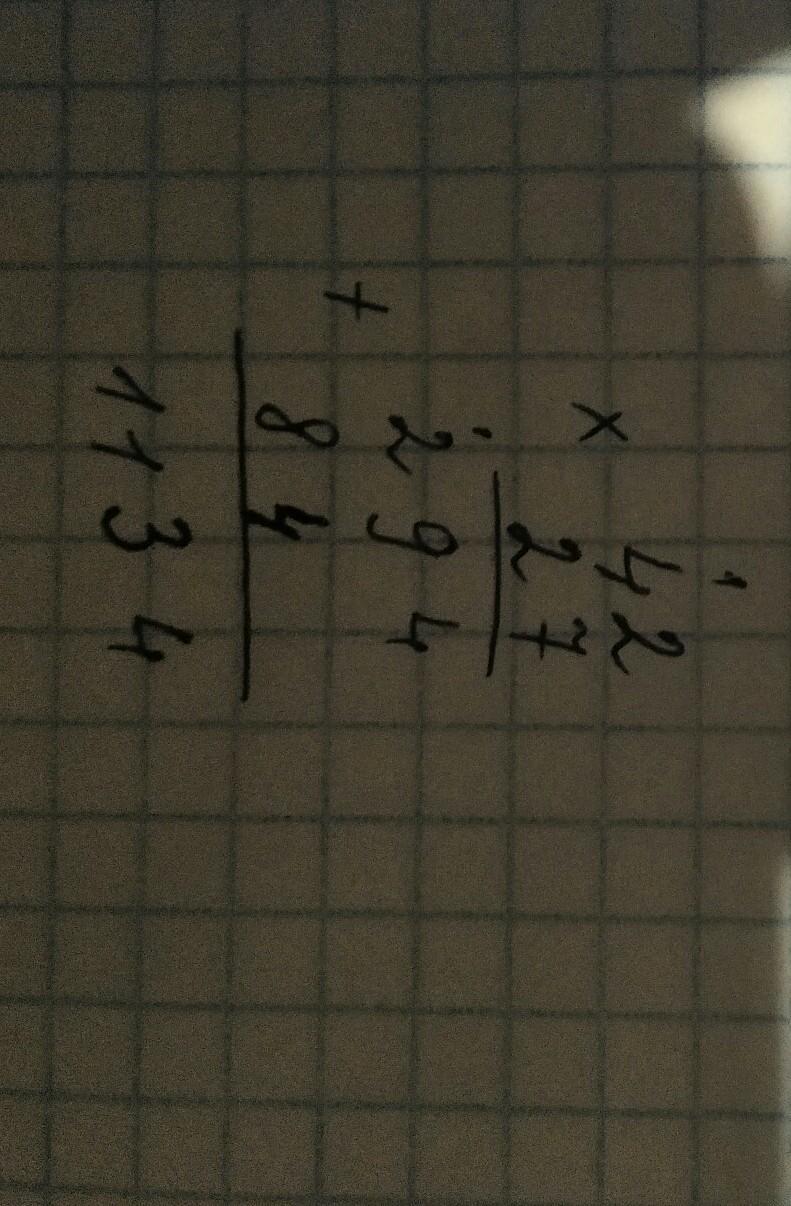 1
42
× 27
294
+ 84
1134